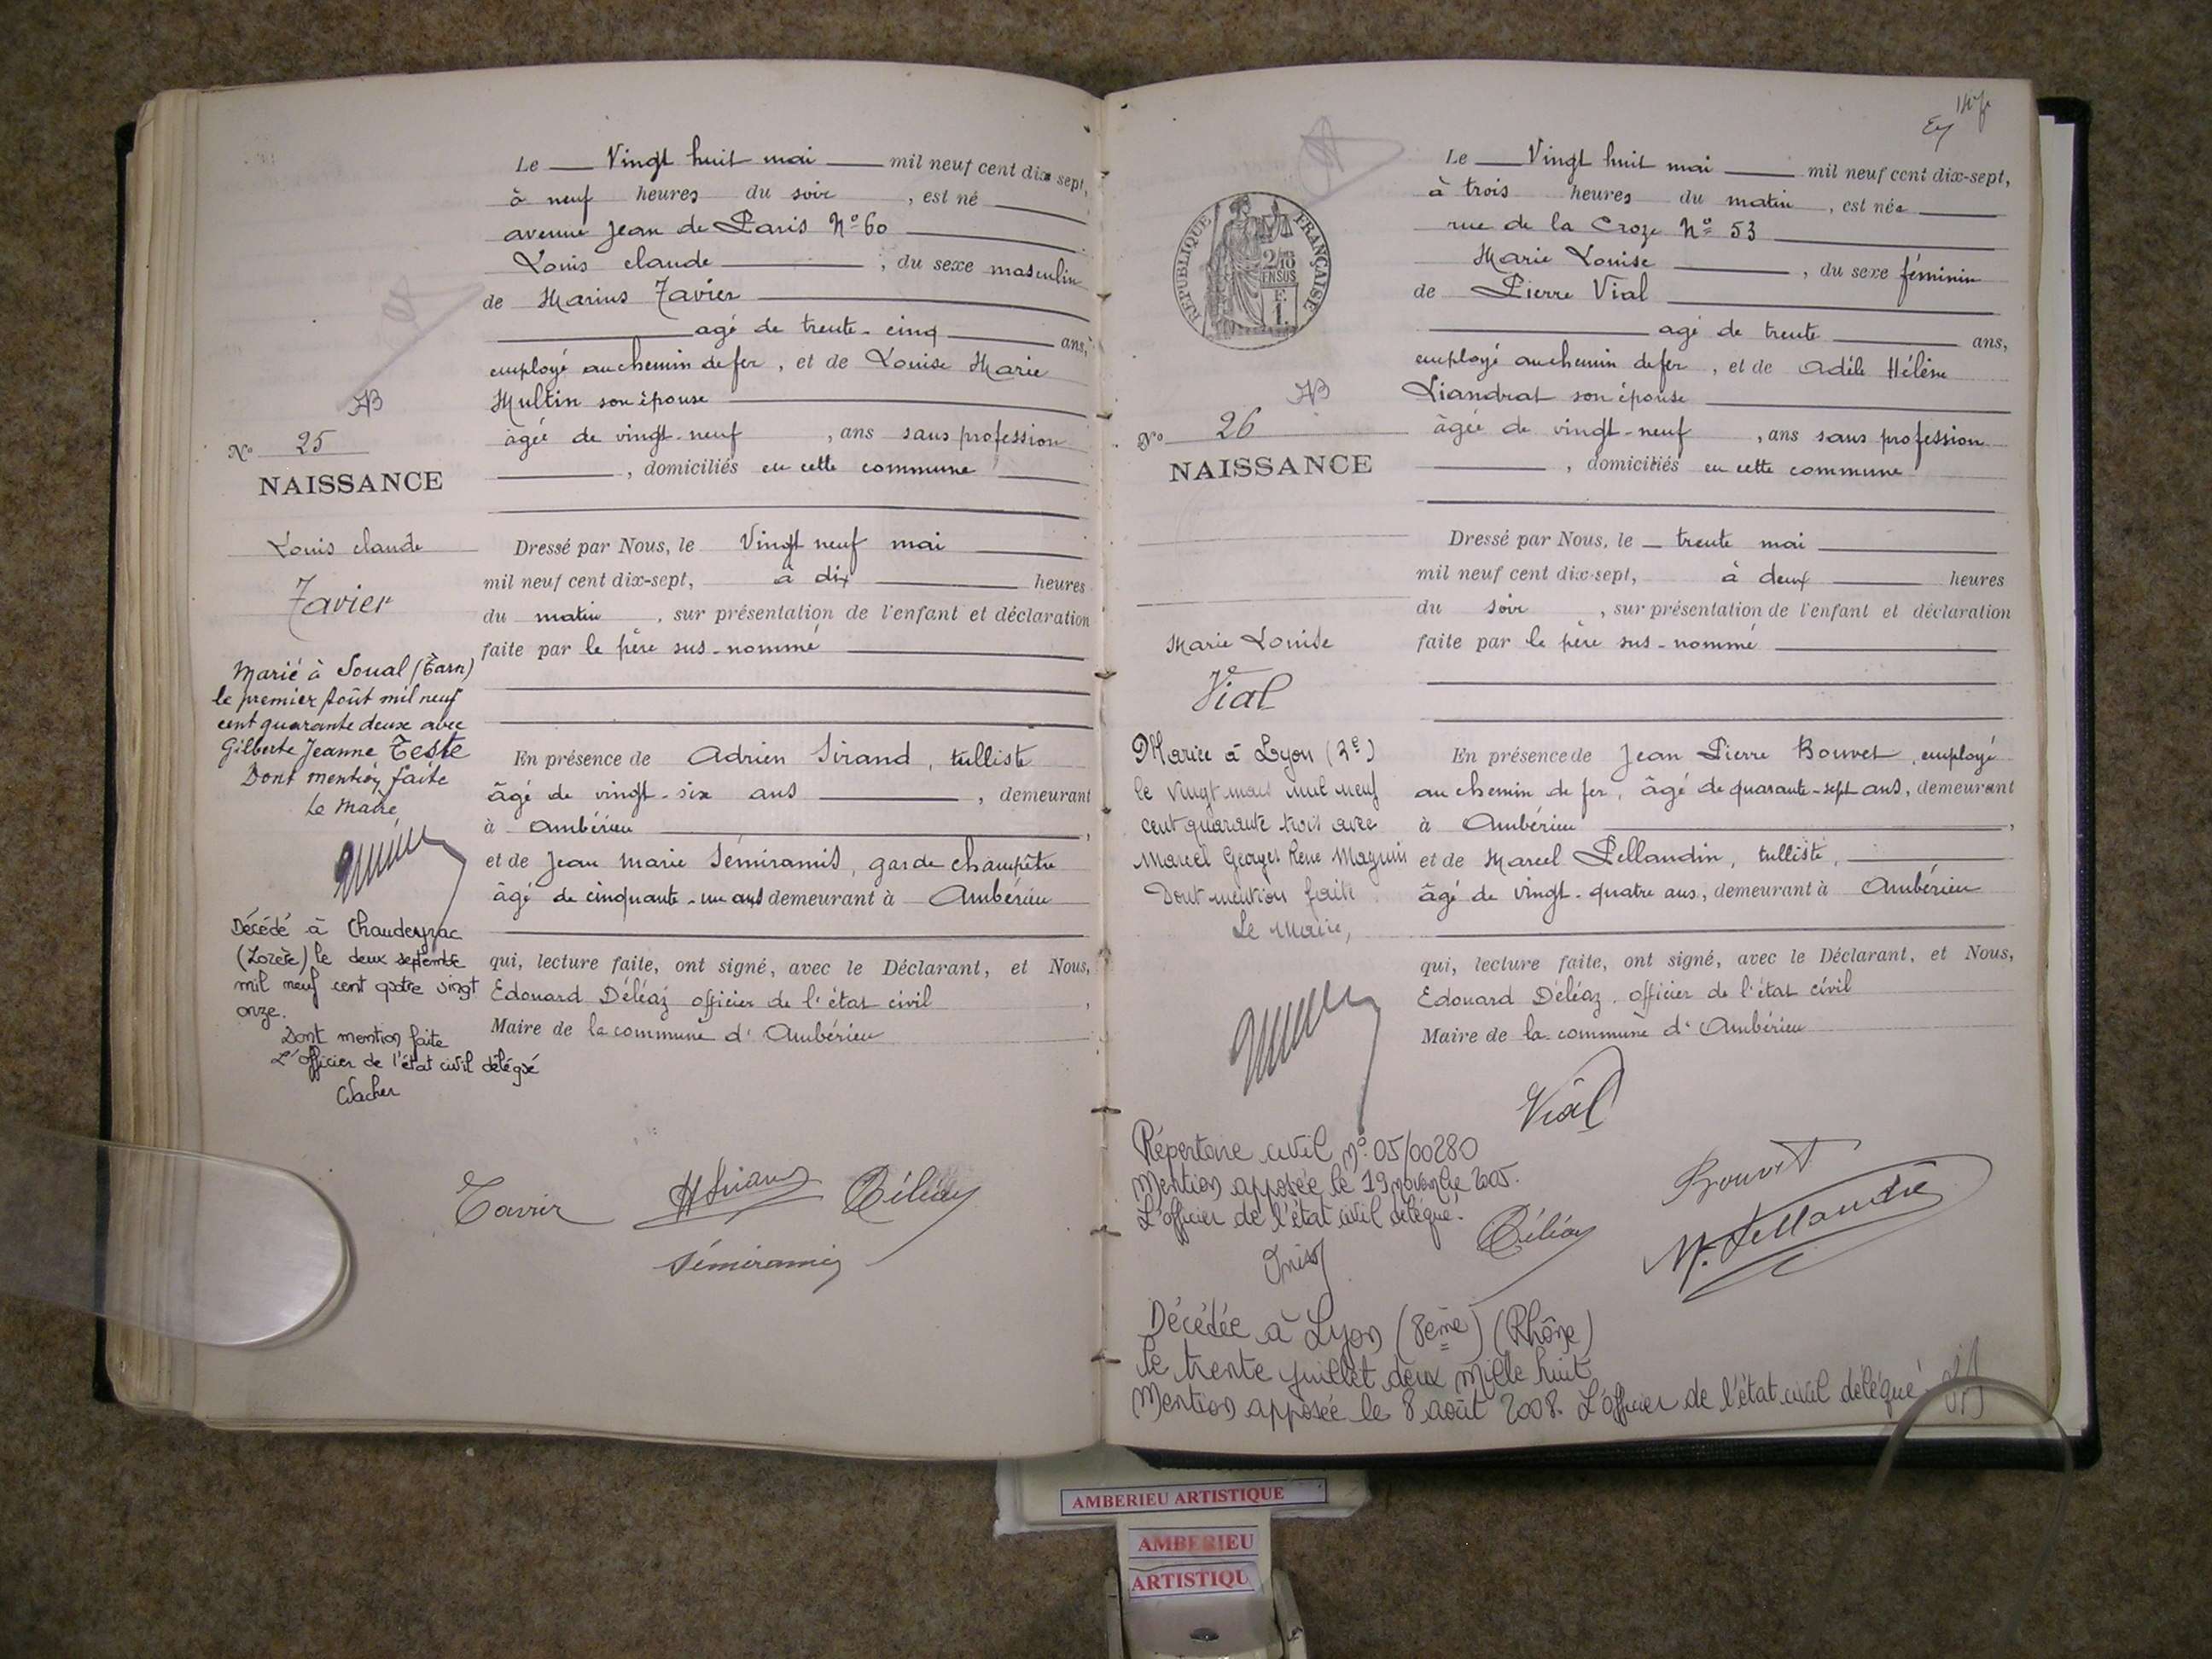 Le Vingt huit mai mil neuf cent dix sept,
à neuf heures du soir , est né
avenue Jean de Paris N° 60
Louis Claude , du sexe masculin
de Marius Tavier
agé de trente-cinq ans,
employé au chemin de fer , et de Louise Marie
Multin son épouse
âgée de vingt-neuf , ans sans profession
, domiciliés en cette commune
N° 25
NAISSANCE
Louis Claude
Tavier
Dressé par Nous, le Vingt neuf mai
mil neuf cent dix-sept, à dix heures
du matin , sur présentation de l'enfant et déclaration
faite par le père sus-nommé
Marié à Soual (Tarn)
le premier Août mil neuf
cent quarante deux avec
Gilberte Jeanne Teste
Dont mention faite
Le Maire
En présence de Adrien Sirand, tulliste
âgé de vingt-six ans , demeurant
à Ambérieu ,
et de Jean Marie Sémiramis, garde champêtre
âgé de cinquante-un ans demeurant à Ambérieu
Décédé à Chaudeyrac
(Lozère) le deux septembre
mil neuf cent quatre vingt
onze.
Dont mention faite
L'officier de l'état civil délégué
qui, lecture faite, ont signé, avec le Déclarant, et Nous,
Edouard Déléaz officier de l'état civil ,
Maire de la commune d'Ambérieu
Tavier
Déléaz
Sémiramis
Le Vingt huit mai mil neuf cent dix-sept,
à trois heures du matin , est née
rue de la Croze N° 53
Marie Louise , du sexe féminin
de Pierre Vial
agé de trente ans,
employé au chemin de fer , et de Adèle Hélène
Liandrat son épouse
âgée de vingt-neuf , ans sans profession
, domiciliés en cette commune
RÉPUBLIQUE FRANÇAISE
2/10
EN SUS
F.
1.
AB
N° 26
NAISSANCE
Marie Louise
Vial
Dressé par Nous, le trente mai
mil neuf cent dix-sept, à deux heures
du soir , sur présentation de l'enfant et déclaration
faite par le père sus-nommé
Mariée à Lyon (2e)
le vingt mars mil neuf
cent quarante trois avec
Marcel Georges René Magnin
Dont mention faite
Le Maire,
En présence de Jean Pierre Bouvet, employé
au chemin de fer, âgé de quarante-sept ans, demeurant
à Ambérieu ,
et de Marcel Pellaudin, tulliste,
âgé de vingt-quatre ans, demeurant à Ambérieu
qui, lecture faite, ont signé, avec le Déclarant, et Nous,
Edouard Déléaz, officier de l'état civil
Maire de la commune d'Ambérieu
Vial
Bouvet
Déléaz
M. Pellaudin
Répertoire civil N° 05/00280
Mention apposée le 19 novembre 2005.
L'officier de l'état civil délégué.
Décédée à Lyon (8ème) (Rhône)
le trente juillet deux mille huit
Mention apposée le 8 août 2008. L'officier de l'état civil délégué
AMBERIEU ARTISTIQUE
AMBERIEU
ARTISTIQU